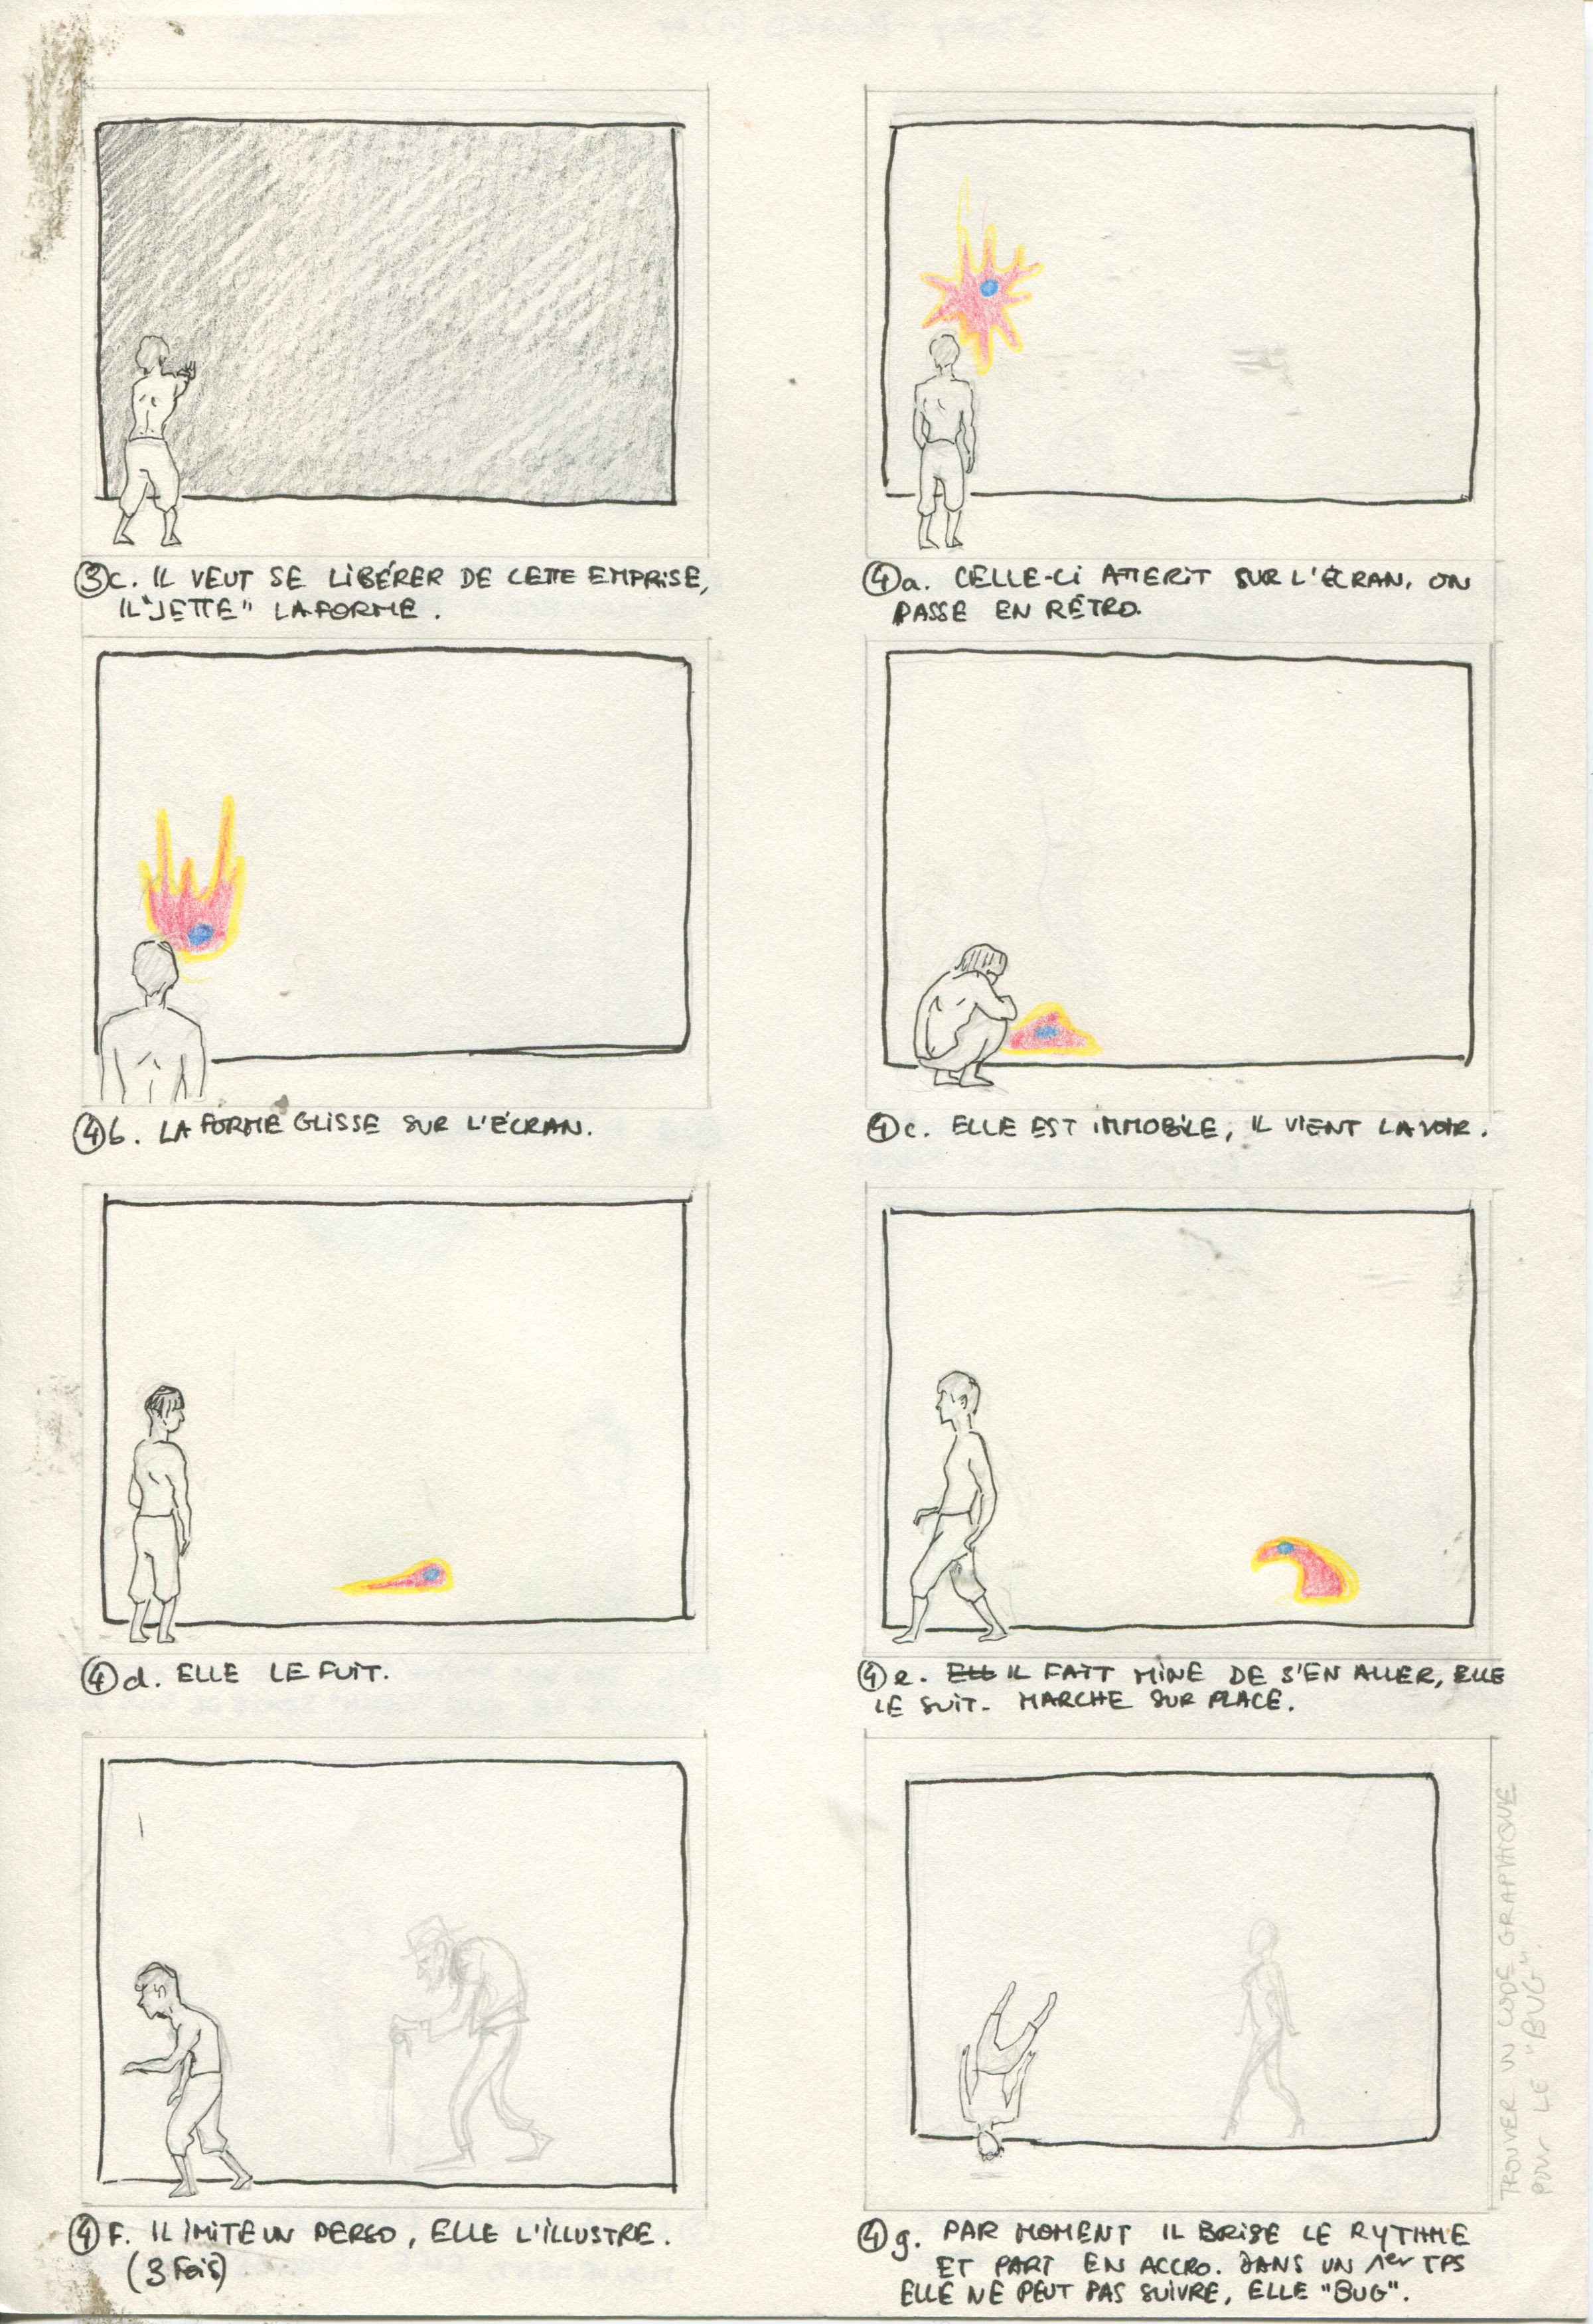 ③c. IL VEUT SE LIBÉRER DE CETTE EMPRISE,
IL "JETTE" LA FORME.
④a. CELLE-CI ATTERIT SUR L'ÉCRAN, ON
PASSE EN RÉTRO.
④b. LA FORME GLISSE SUR L'ÉCRAN.
④c. ELLE EST IMMOBILE, IL VIENT LA VOIR.
④d. ELLE LE FUIT.
④e. ELLE IL FAIT MINE DE S'EN ALLER, ELLE
LE SUIT. MARCHE SUR PLACE.
④F. IL IMITE UN PERSO, ELLE L'ILLUSTRE.
(3 FOIS)
④g. PAR MOMENT IL BRISE LE RYTHME
ET PART EN ACCRO. DANS UN 1er TPS
ELLE NE PEUT PAS SUIVRE, ELLE "BUG".
TROUVER UN CODE GRAPHIQUE
POUR LE "BUG".